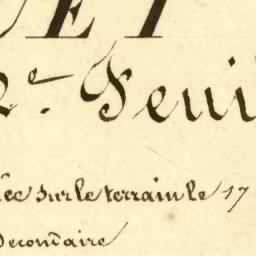 UET
2e. Feui
ée sur le terrain le 17
Secondaire